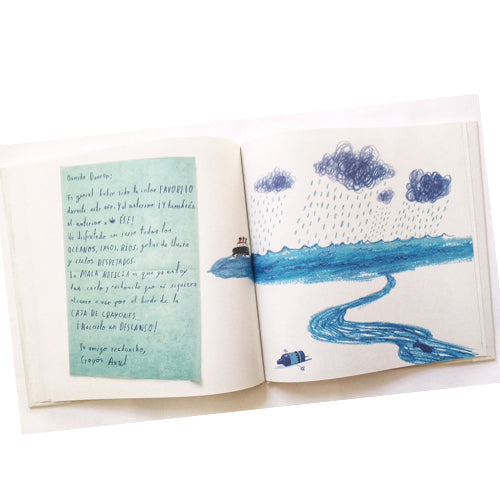 Querido Duncan:
Es genial haber sido tu color FAVORITO
durante este año. Y el anterior ¡Y también
el anterior a ESE!
He disfrutado un serie todos los
OCÉANOS, LAGOS, RÍOS, gotas de lluvia
y cielos DESPEJADOS.
La MALA NOTICIA es que ya estoy
tan corto y rechoncho que ni siquiera
alcanzo a ver por el borde de la
CAJA DE CRAYONES.
¡Necesito un DESCANSO!
Tu amigo rechoncho,
Crayón Azul